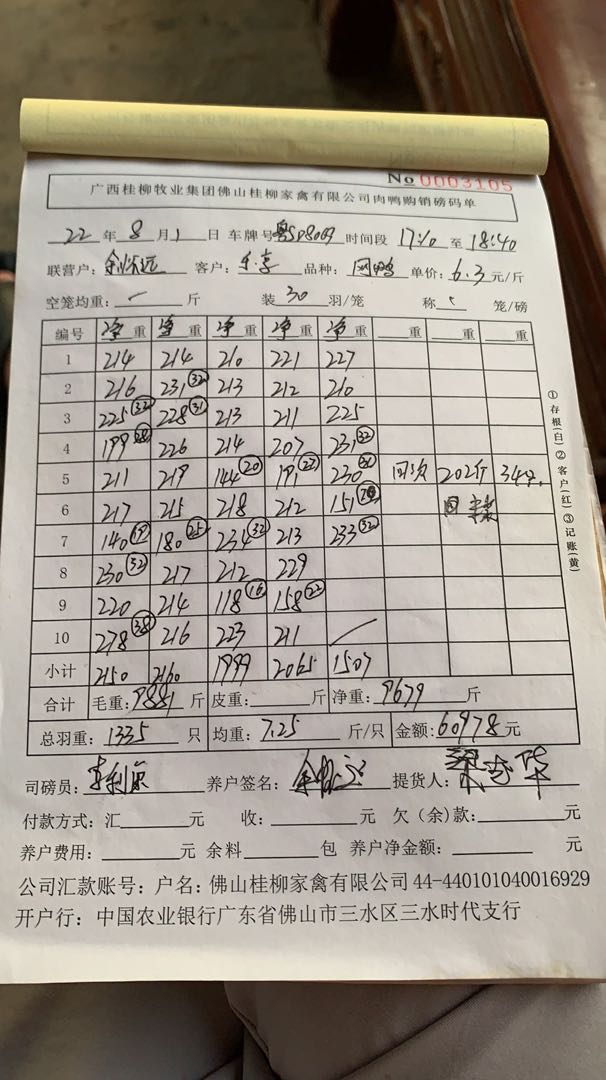 No 0003105
广西桂柳牧业集团佛山桂柳家禽有限公司肉鸭购销磅码单
22 年 8 月 1 日 车牌号 粤 时间段 17:10 至 18:40
联营户: 余 远 客户: 李 品种: 网鸭 单价: 6.3 元/斤
空笼均重: 斤 装 30 羽/笼 称 笼/磅
编号 净重 净重 净重 净重 净重 重 重 重
1 214 214 210 221 227
2 216 231 32 213 212 210
3 225 32 228 31 213 211 225
4 199 28 226 214 207 231 32
5 211 219 144 20 191 27 230 回 202斤 34只
6 217 215 218 212 151 回
7 140 19 180 25 234 32 213 233 32
8 230 32 217 212 229
9 220 214 118 16 158 22
10 278 38 216 223 211 /
小计 2150 2160 1999 2065 1507
合计 毛重: 9881 斤 皮重: 斤 净重: 9679 斤
总羽重: 1335 只 均重: 7.25 斤/只 金额: 60978 元
司磅员: 李利 养户签名: 余 提货人: 梁 华
付款方式: 汇 元 收: 元 欠(余)款: 元
养户费用: 元 余料 包 养户净金额: 元
公司汇款账号: 户名: 佛山桂柳家禽有限公司 44-440101040016929
开户行: 中国农业银行广东省佛山市三水区三水时代支行
①存根(白)②客户(红)③记账(黄)